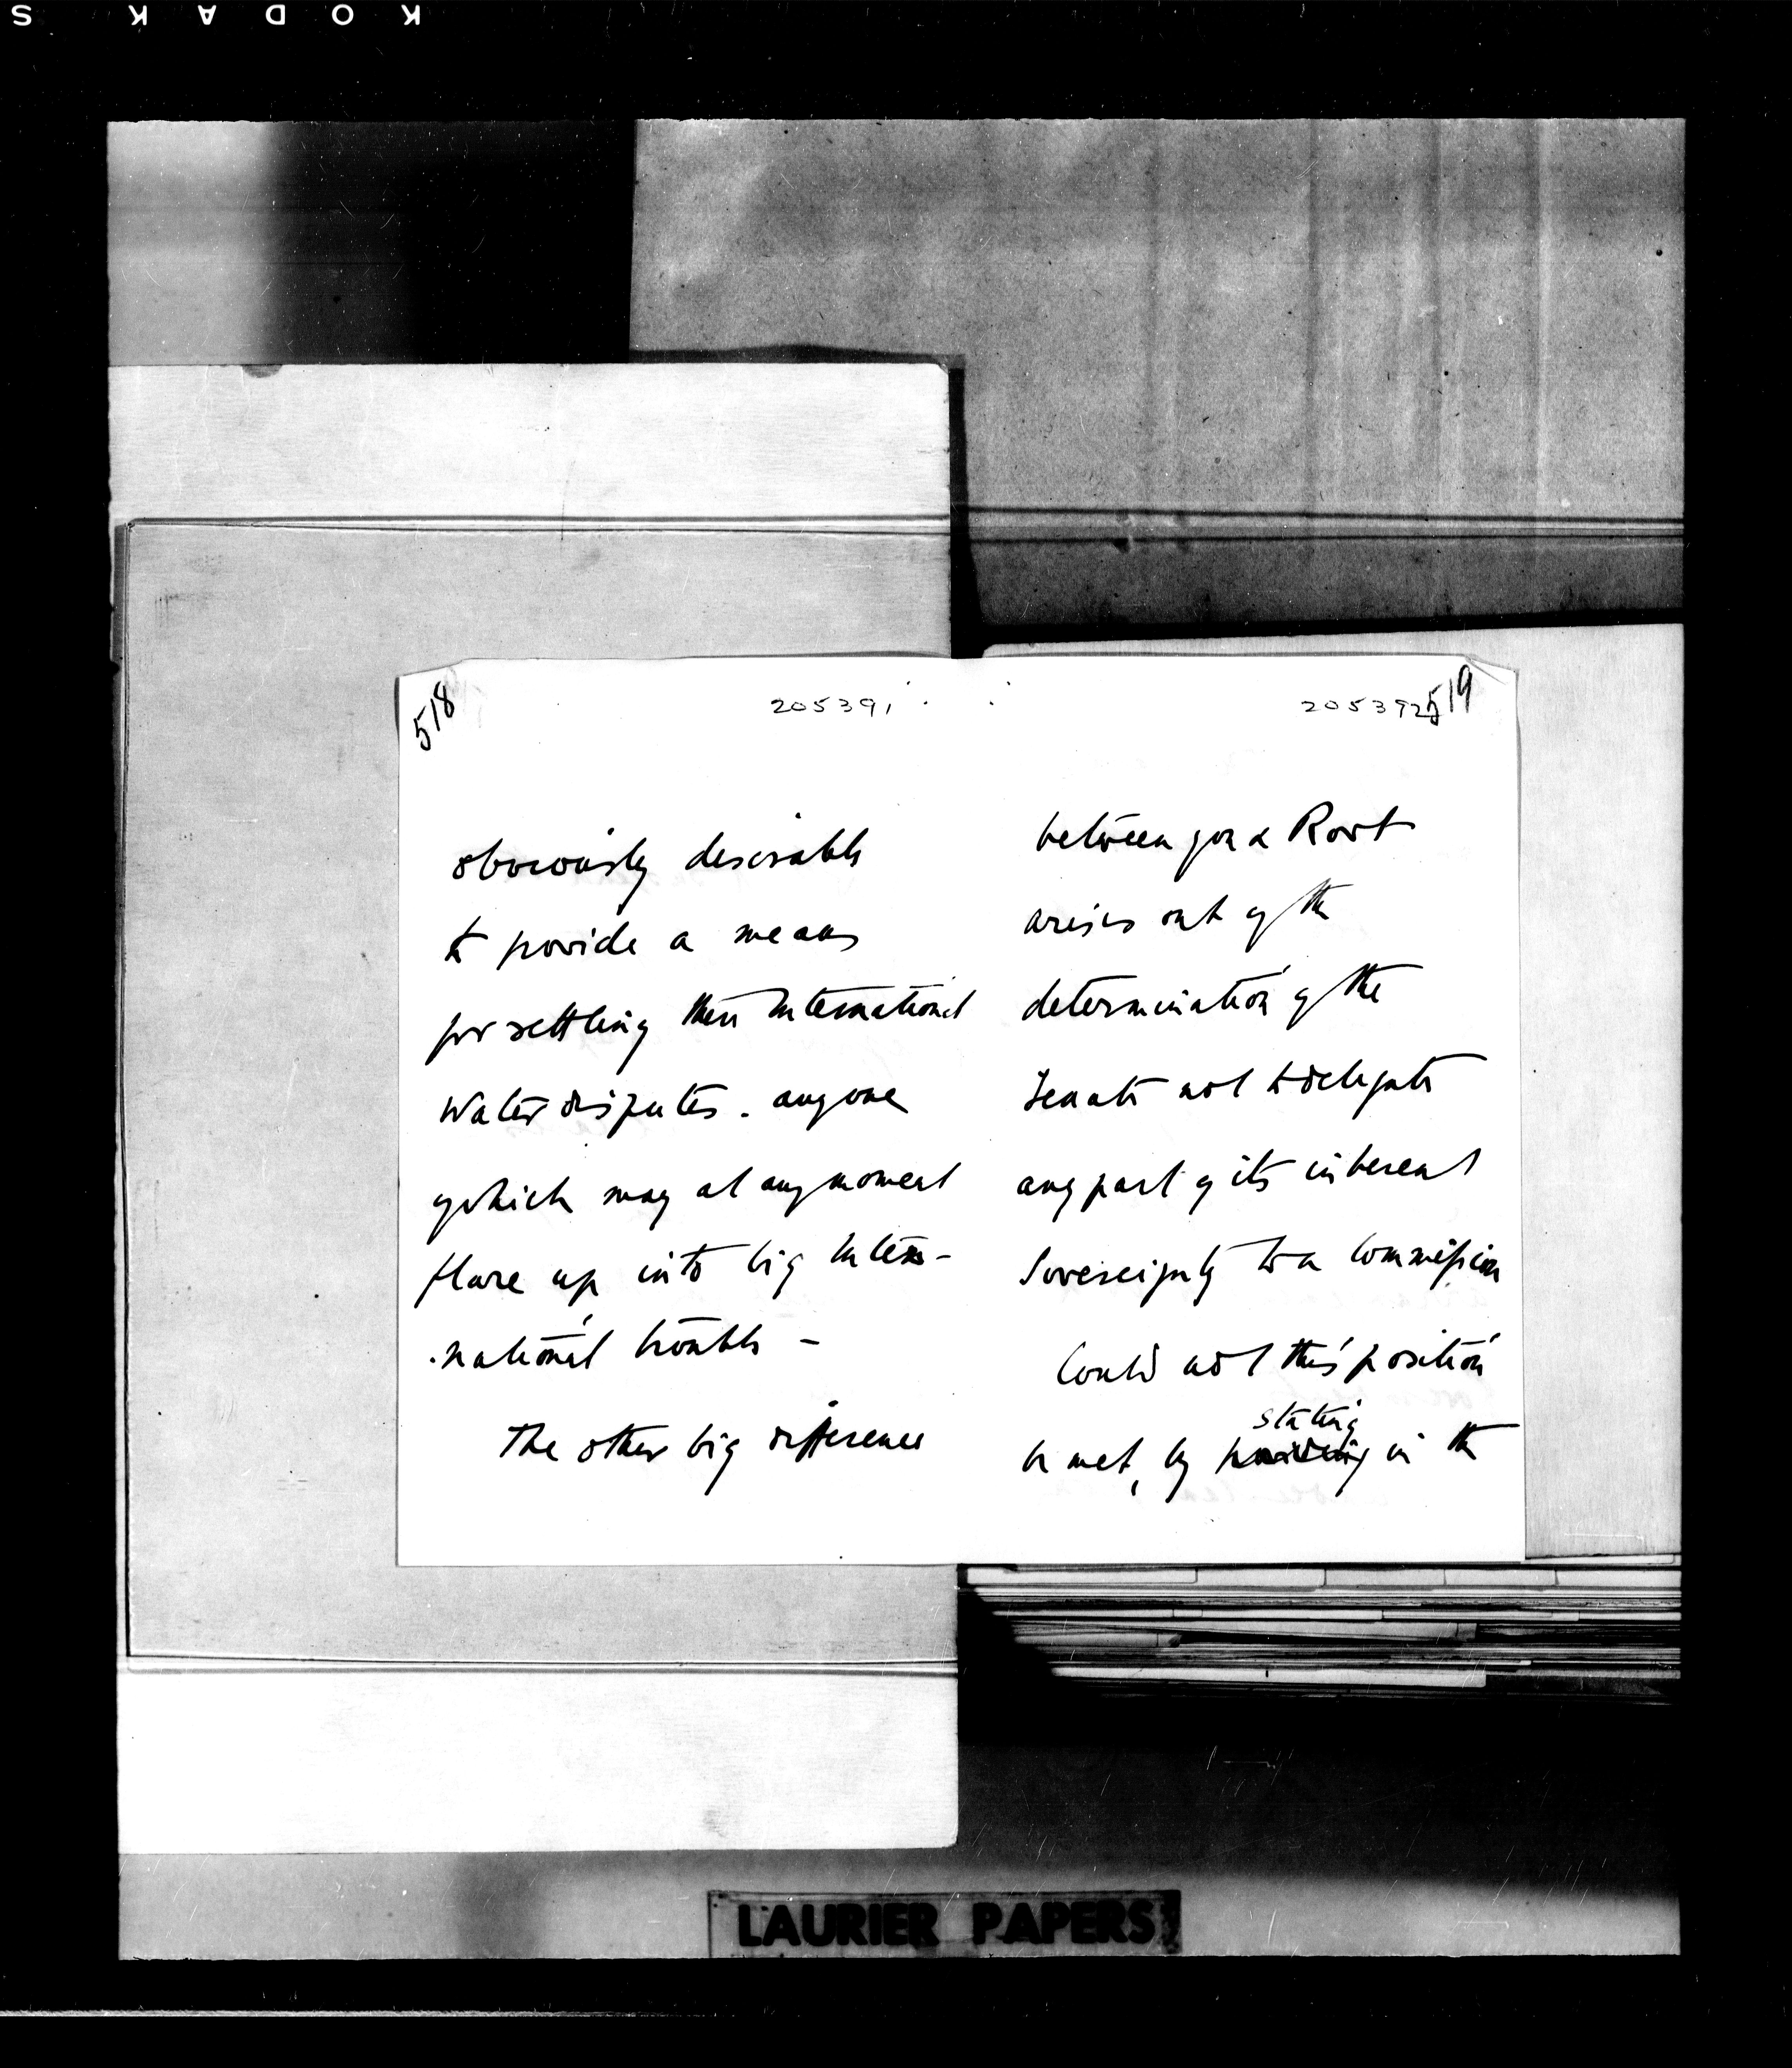 KODAK S
518
205391
obviously desirable
to provide a means
for settling these International
Water disputes. anyone
of which may at any moment
flare up into big Inter-
-national trouble -
The other big difference
205392
519
between you & Root
arises out of the
determination of the
Senate not to delegate
any part of its inherent
Sovereignty to a Commission
Could not this position
be met, by stating in the
LAURIER PAPERS